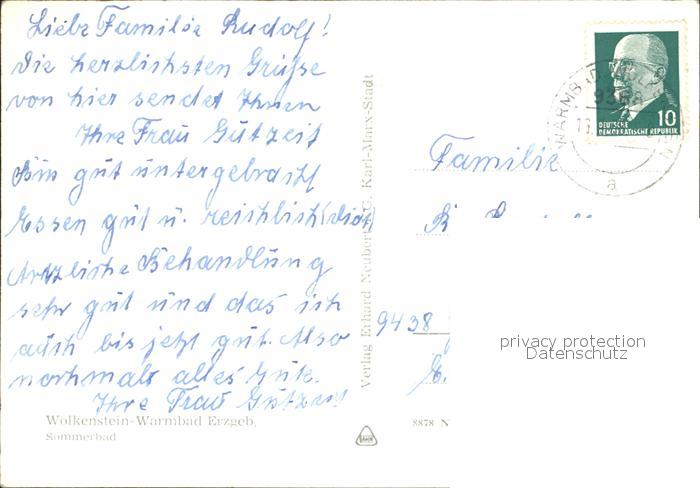 Liebe Familie Rudolf!
Die herzlichsten Grüße
von hier sendet Ihnen
Ihre Frau Gutzeit
Bin gut untergebracht
Essen gut u. reichlich (Diät)
Ärtzliche Behandlung
sehr gut und das ich
auch bis jetzt gut. Also
nochmals alles Gute.
Ihre Frau Gutzeit
Wolkenstein-Warmbad Erzgeb.
Sommerbad
Verlag Erhard Neubert KG. Karl-Marx-Stadt
10
DEUTSCHE
DEMOKRATISCHE REPUBLIK
a
Familie
9438
8878 N
privacy protection
Datenschutz